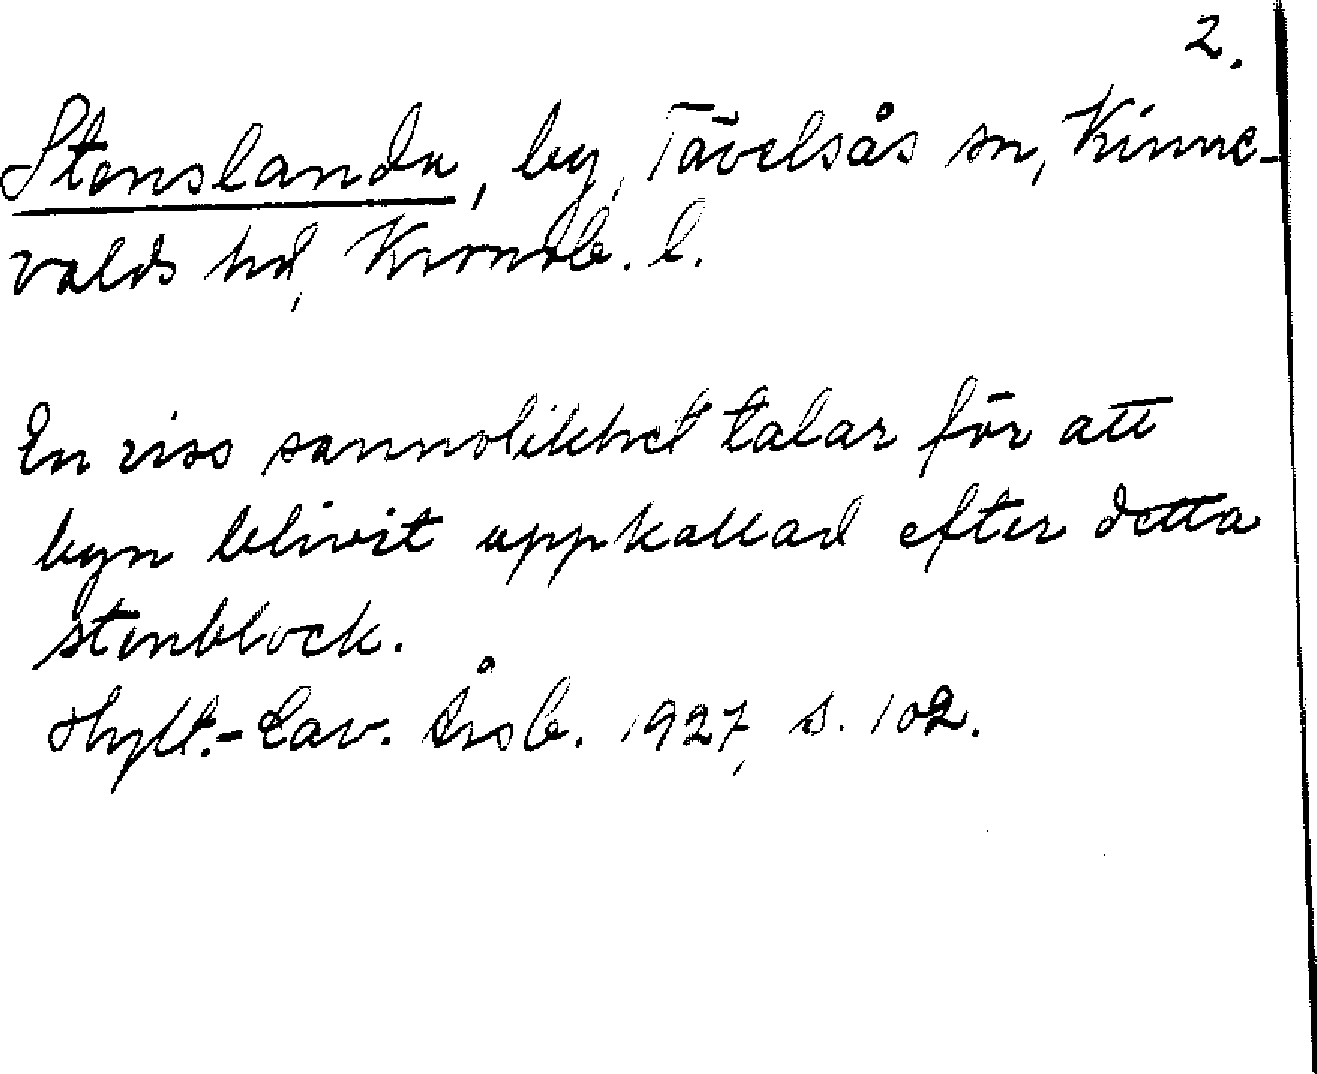 2.
Stenslanda, by, Tävelsås sn, Kinne-
valds hd, Kronob. l.
En viss sannolikhet talar för att
byn blivit uppkallad efter detta
stenblock.
Hylt.-Cav. Årsb. 1927, s. 102.